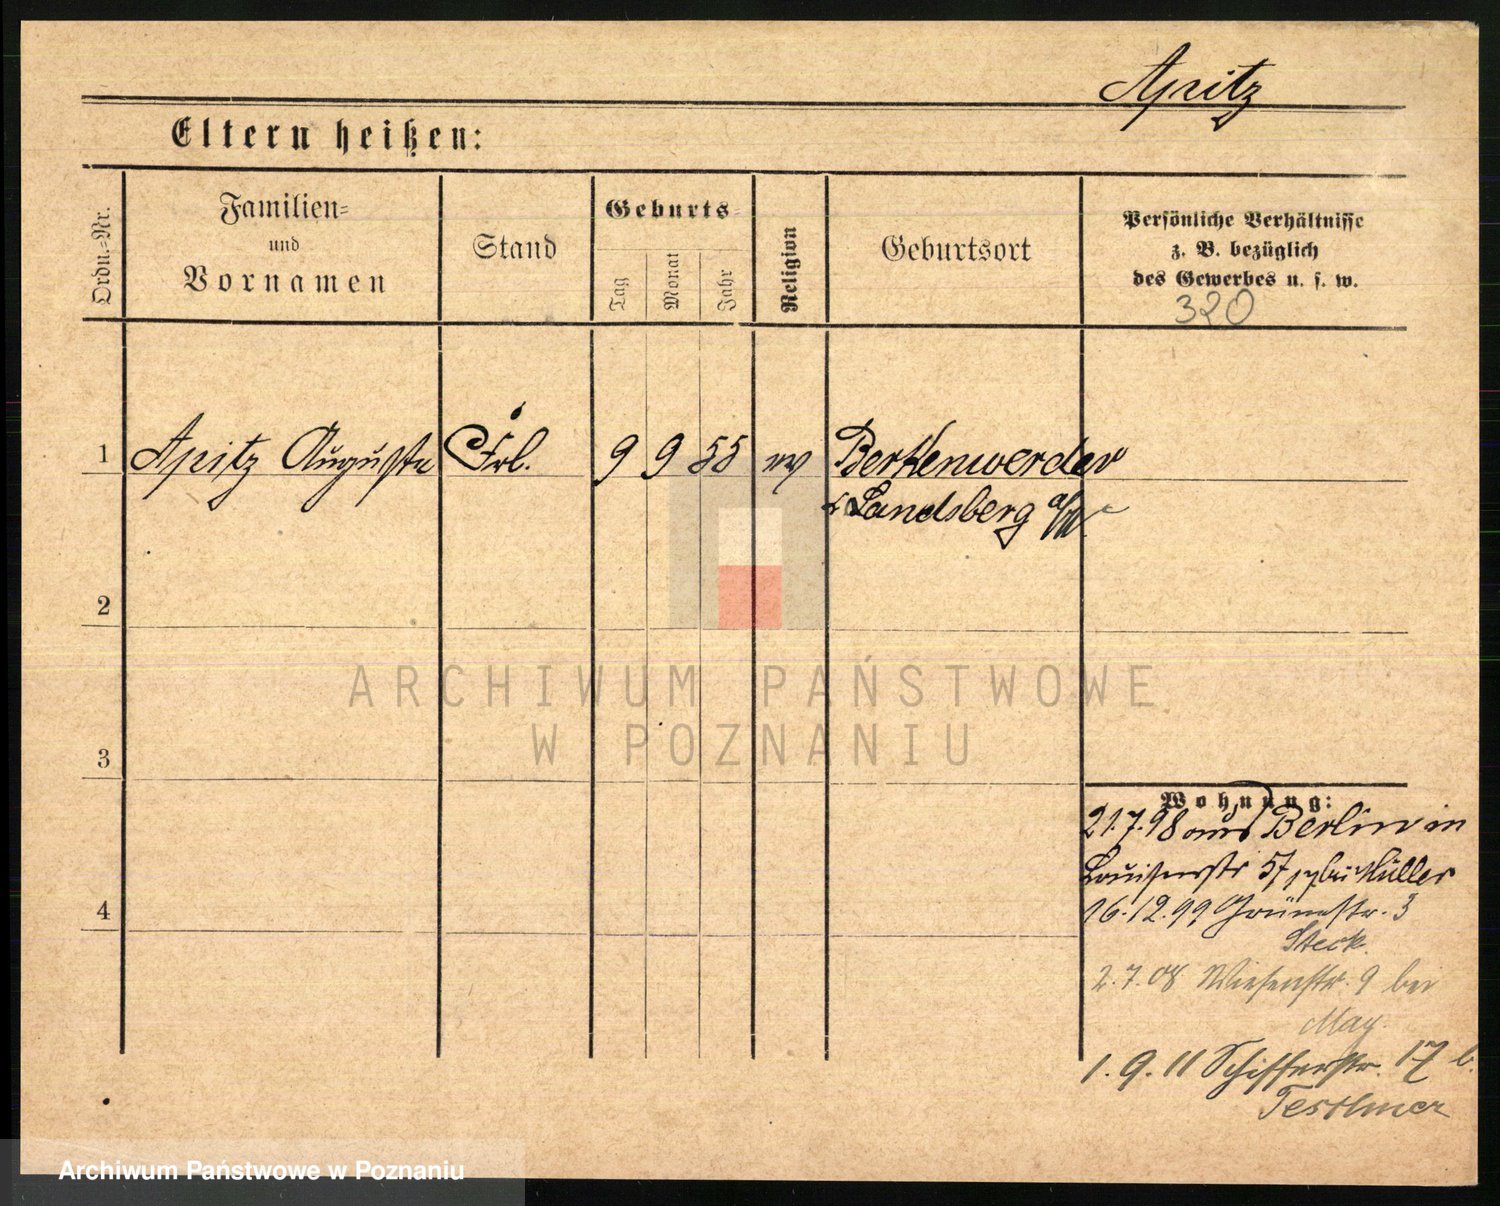 Apitz
Eltern heißen:
Ordn.-Nr.
Familien-
und
Vornamen
Stand
Geburts-
Tag
Monat
Jahr
Religion
Geburtsort
Persönliche Verhältnisse
z. B. bezüglich
des Gewerbes u. s. w.
320
1 Apitz Auguste Frl. 9 9 55 ev Berkenwerder
Landsberg a/W
2
ARCHIWUM PAŃSTWOWE
W POZNANIU
3
Wohnung:
21.7.98 aus Berlin in
Louisenstr 57 bei Müller
4
16.12.99 Grünestr. 3
Steck.
2.7.08 Wiesenstr. 9 bei
May.
1.9.11 Schifferstr. 17 b.
Archiwum Państwowe w Poznaniu